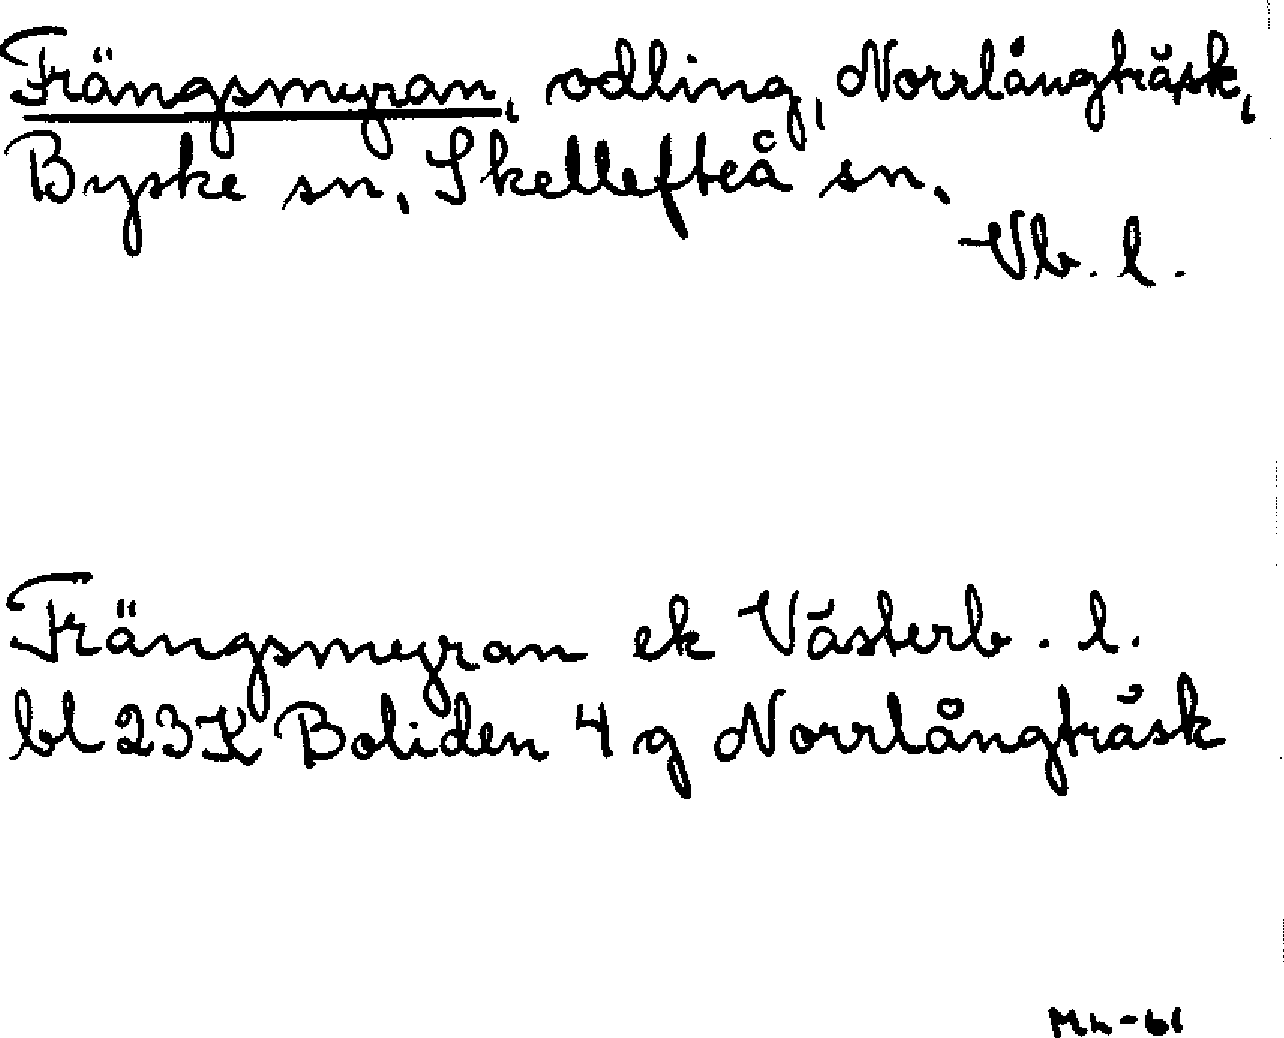 Frängsmyran, odling, Norrlångträsk,
Byske sn, Skellefteå sn.
Vb. l.
Frängsmyran ek Västerb. l.
bl 23K Boliden 4g Norrlångträsk
Mh-61